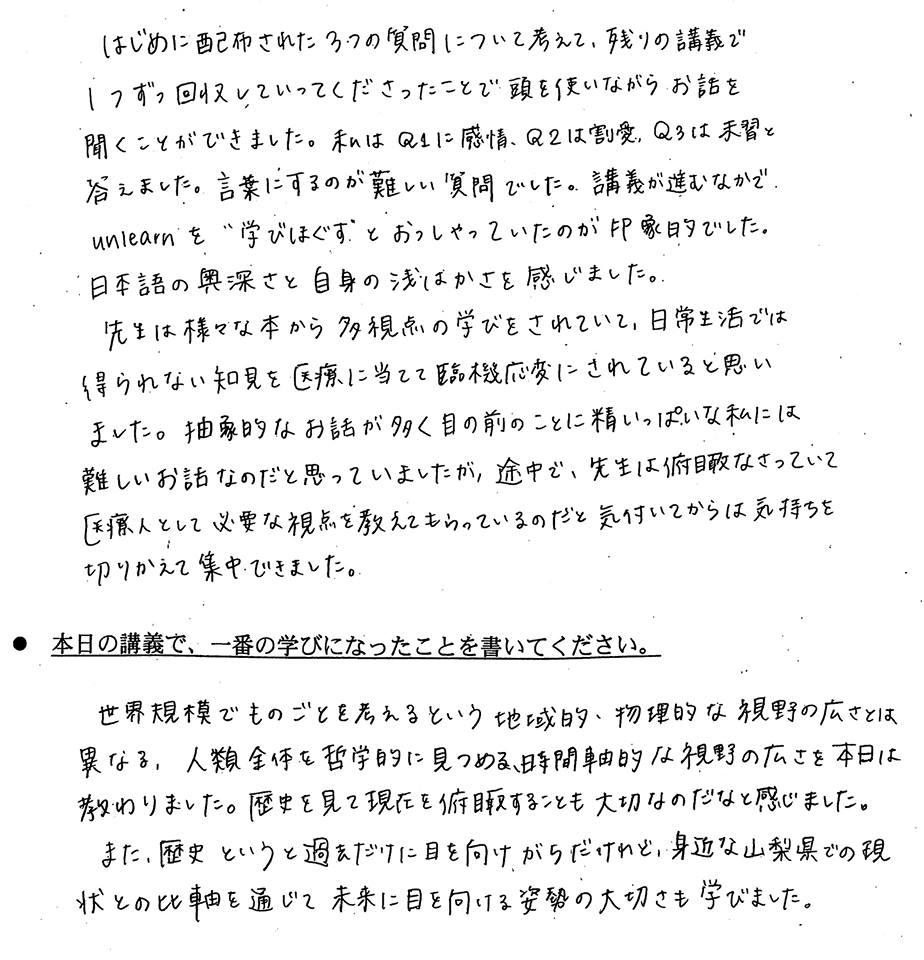 はじめに配布された3つの質問について考えて、残りの講義で
1つずつ回収していってくださったことで頭を使いながらお話を
聞くことができました。私はQ1に感情、Q2は割愛、Q3は未習と
答えました。言葉にするのが難しい質問でした。講義が進むなかで
unlearnを“学びほぐす”とおっしゃっていたのが印象的でした。
日本語の奥深さと自身の浅はかさを感じました。
先生は様々な本から多視点の学びをされていて、日常生活では
得られない知見を医療に当てて臨機応変にされていると思い
ました。抽象的なお話が多く目の前のことに精いっぱいな私には
難しいお話なのだと思っていましたが、途中で、先生は俯瞰なさっていて
医療人として必要な視点を教えてもらっているのだと気付いてからは気持ちを
切りかえて集中できました。
● 本日の講義で、一番の学びになったことを書いてください。
世界規模でものごとを考えるという地域的、物理的な視野の広さとは
異なる、人類全体を哲学的に見つめる、時間軸的な視野の広さを本日は
教わりました。歴史を見て現在を俯瞰することも大切なのだなと感じました。
また、歴史というと過去だけに目を向けがちだけれど、身近な山梨県での現
状との比軸を通じて未来に目を向ける姿勢の大切さも学びました。